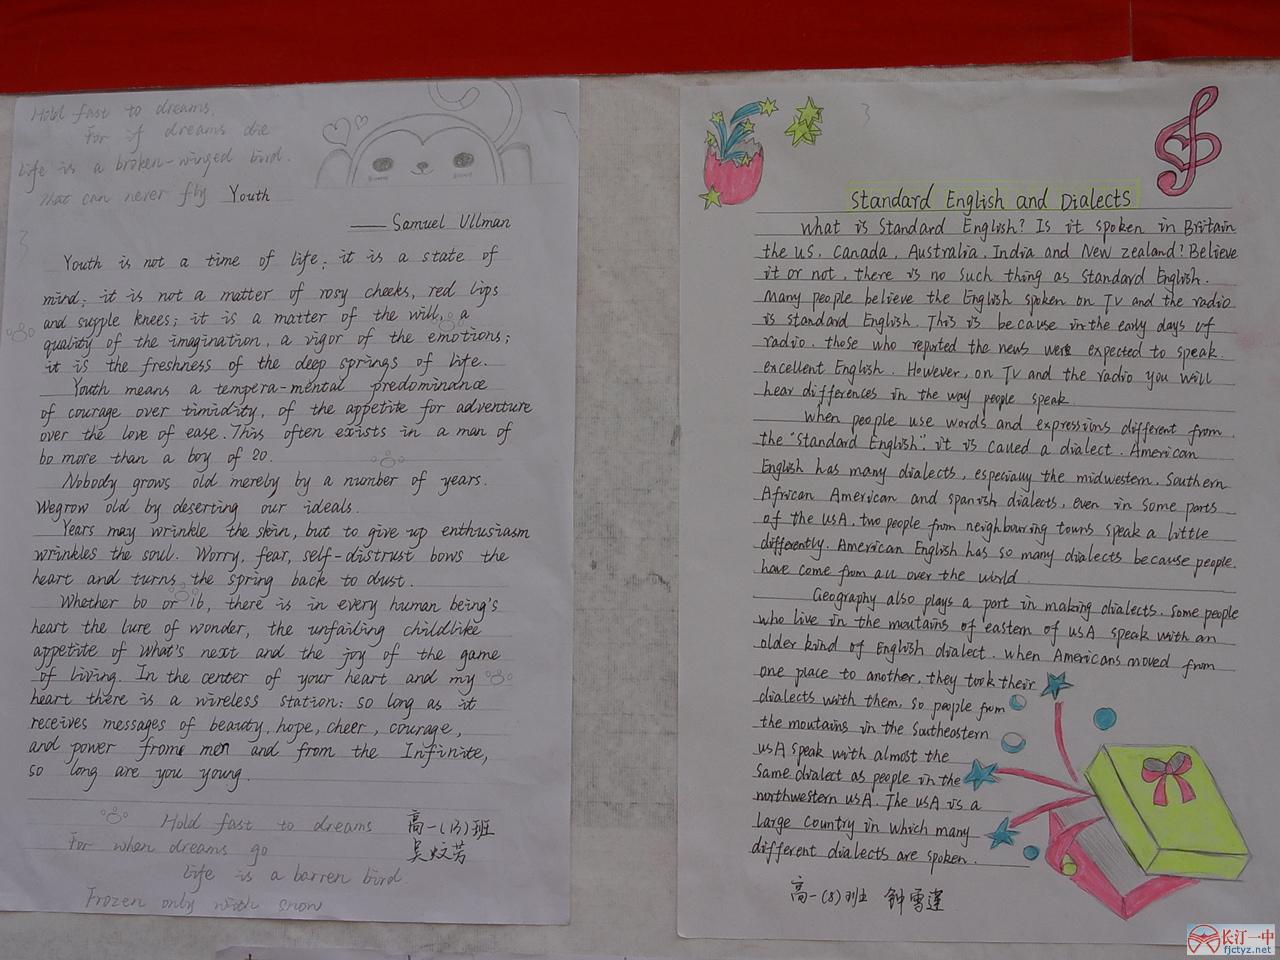 Hold fast to dreams.
For if dreams die
Life is a broken-winged bird.
That can never fly
Youth
—— Samuel Ullman
Youth is not a time of life; it is a state of
mind; it is not a matter of rosy cheeks, red lips
and supple knees; it is a matter of the will, a
quality of the imagination, a vigor of the emotions;
it is the freshness of the deep springs of life.
Youth means a tempera-mental predominance
of courage over timidity, of the appetite for adventure
over the love of ease. This often exists in a man of
60 more than a boy of 20.
Nobody grows old merely by a number of years.
Wegrow old by deserting our ideals.
Years may wrinkle the skin, but to give up enthusiasm
wrinkles the soul. Worry, fear, self-distrust bows the
heart and turns the spring back to dust.
Whether 60 or 16, there is in every human being's
heart the lure of wonder, the unfailing childlike
appetite of what's next and the joy of the game
of living. In the center of your heart and my
heart there is a wireless station: so long as it
receives messages of beauty, hope, cheer, courage,
and power from men and from the Infinite,
so long are you young.
Hold fast to dreams
For when dreams go
Life is a barren bird.
Frozen only with snow
高一(13)班
吴蚊芳
Standard English and Dialects
What is Standard English? Is it spoken in Britain
the US, Canada, Australia, India and New zealand? Believe
it or not, there is no such thing as Standard English.
Many people believe the English spoken on TV and the radio
is standard English. This is because in the early days of
radio, those who reported the news were expected to speak
excellent English. However, on TV and the radio you will
hear differences in the way people speak.
When people use words and expressions different from
the "Standard English", it is called a dialect. American
English has many dialects, especially the midwestern, Southern
African American and spanish dialects, even in some parts
of the USA, two people from neighbouring towns speak a little
differently. American English has so many dialects because people
have come from all over the world.
Geography also plays a part in making dialects. Some people
who live in the moutains of eastern of USA speak with an
older kind of English dialect. When Americans moved from
one place to another, they took their
dialects with them, so people from
the moutains in the Southeastern
USA speak with almost the
same dialect as people in the
northwestern USA. The USA is a
large country in which many
different dialects are spoken.
高一(8)班 钟雪莲
长汀一中
fjctyz.net